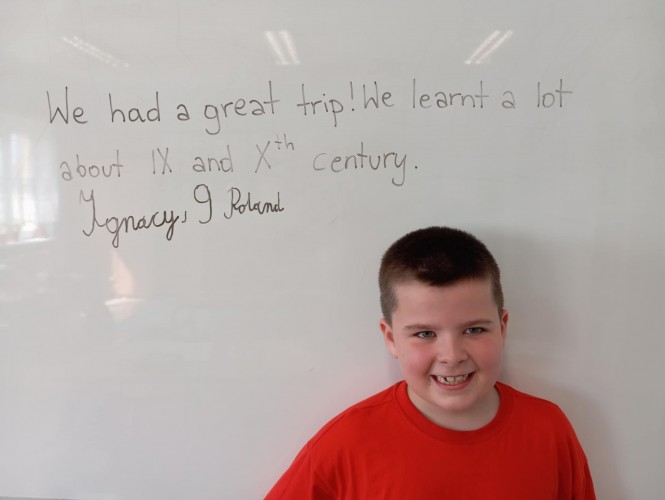 We had a great trip! We learnt a lot
about IX and Xth century.
Ignacy, 9 Roland